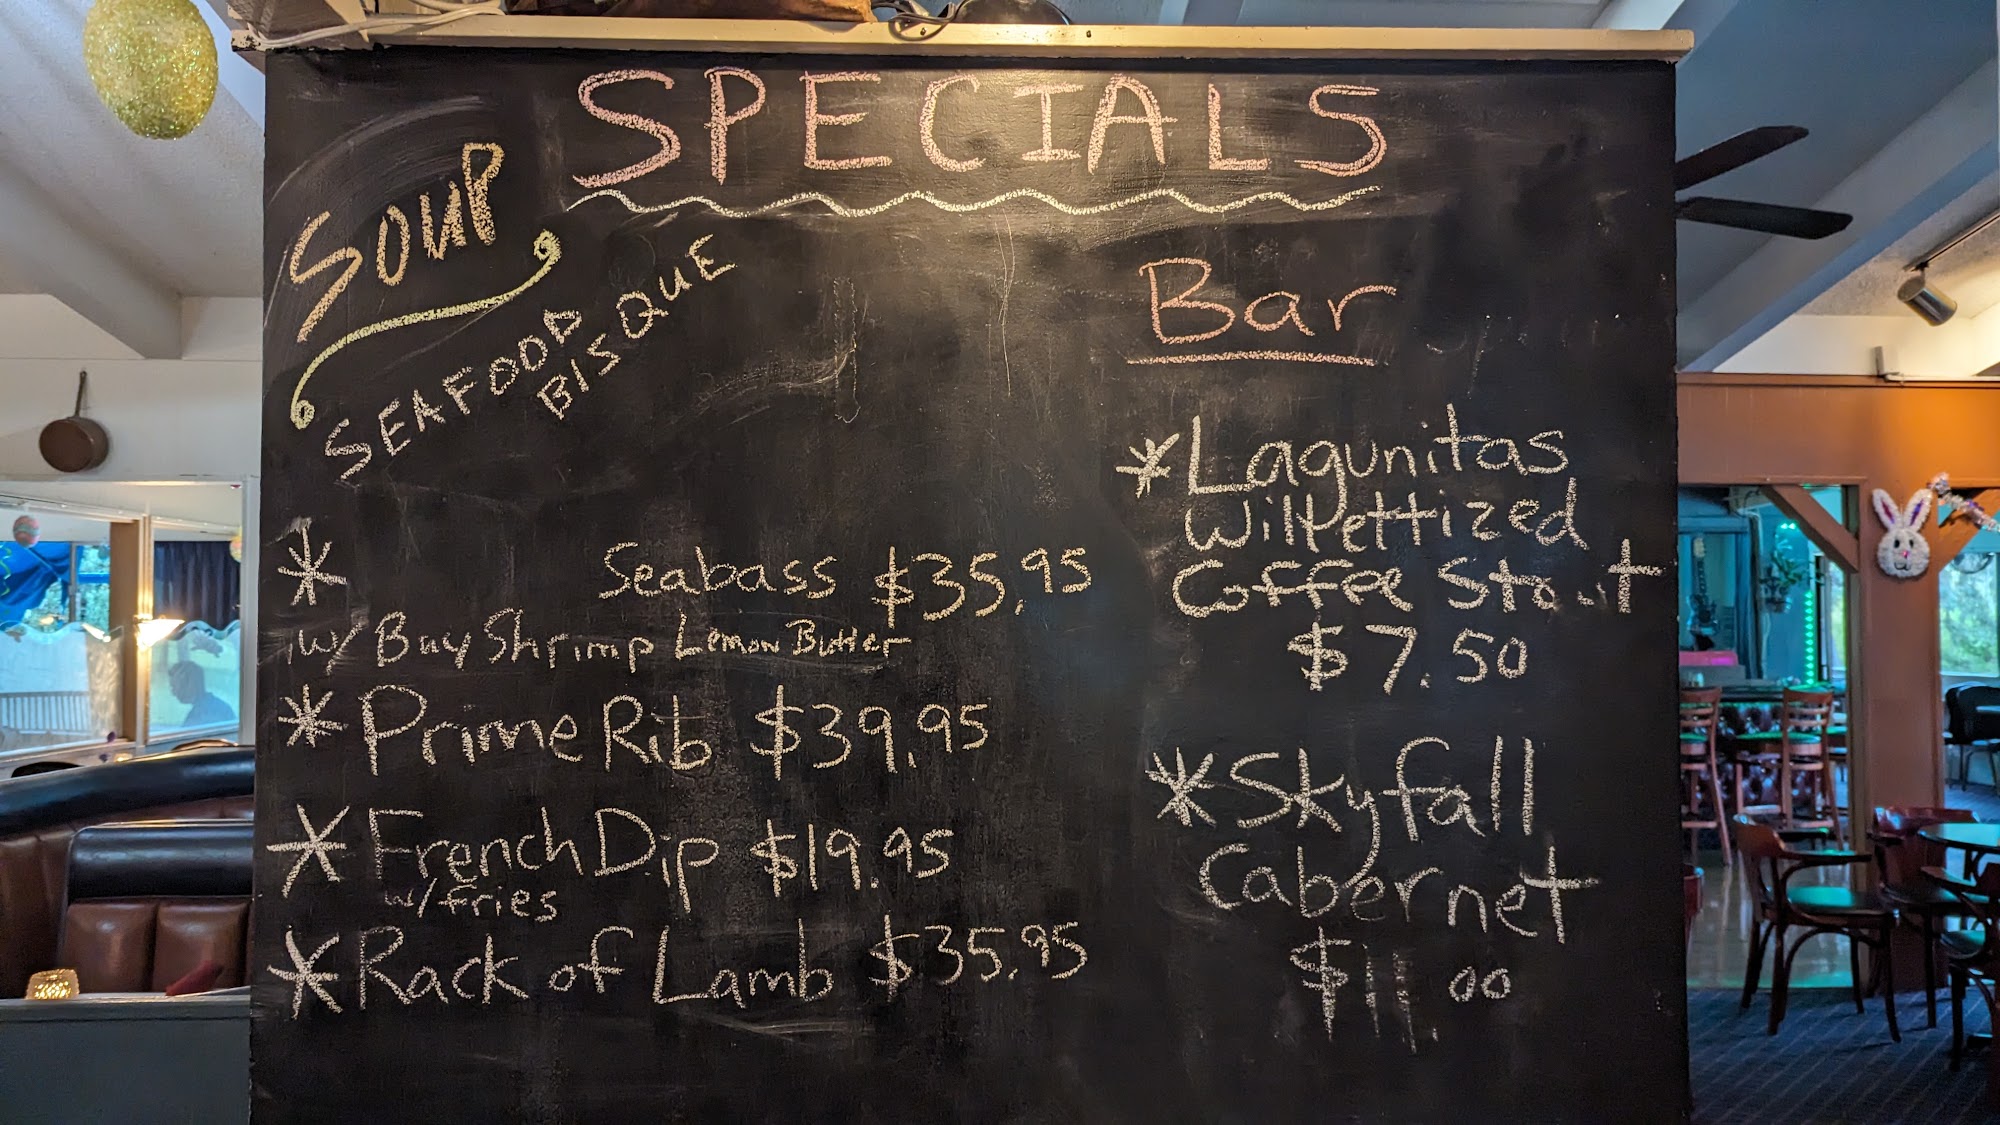 SPECIALS
SOUP
SEAFOOD
BISQUE
* Seabass $35.95
w/ Bay Shrimp Lemon Butter
* Prime Rib $39.95
* French Dip $19.95
w/fries
* Rack of Lamb $35.95
Bar
* Lagunitas
Willpettized
Coffee Stout
$7.50
* Skyfall
Cabernet
$11.00